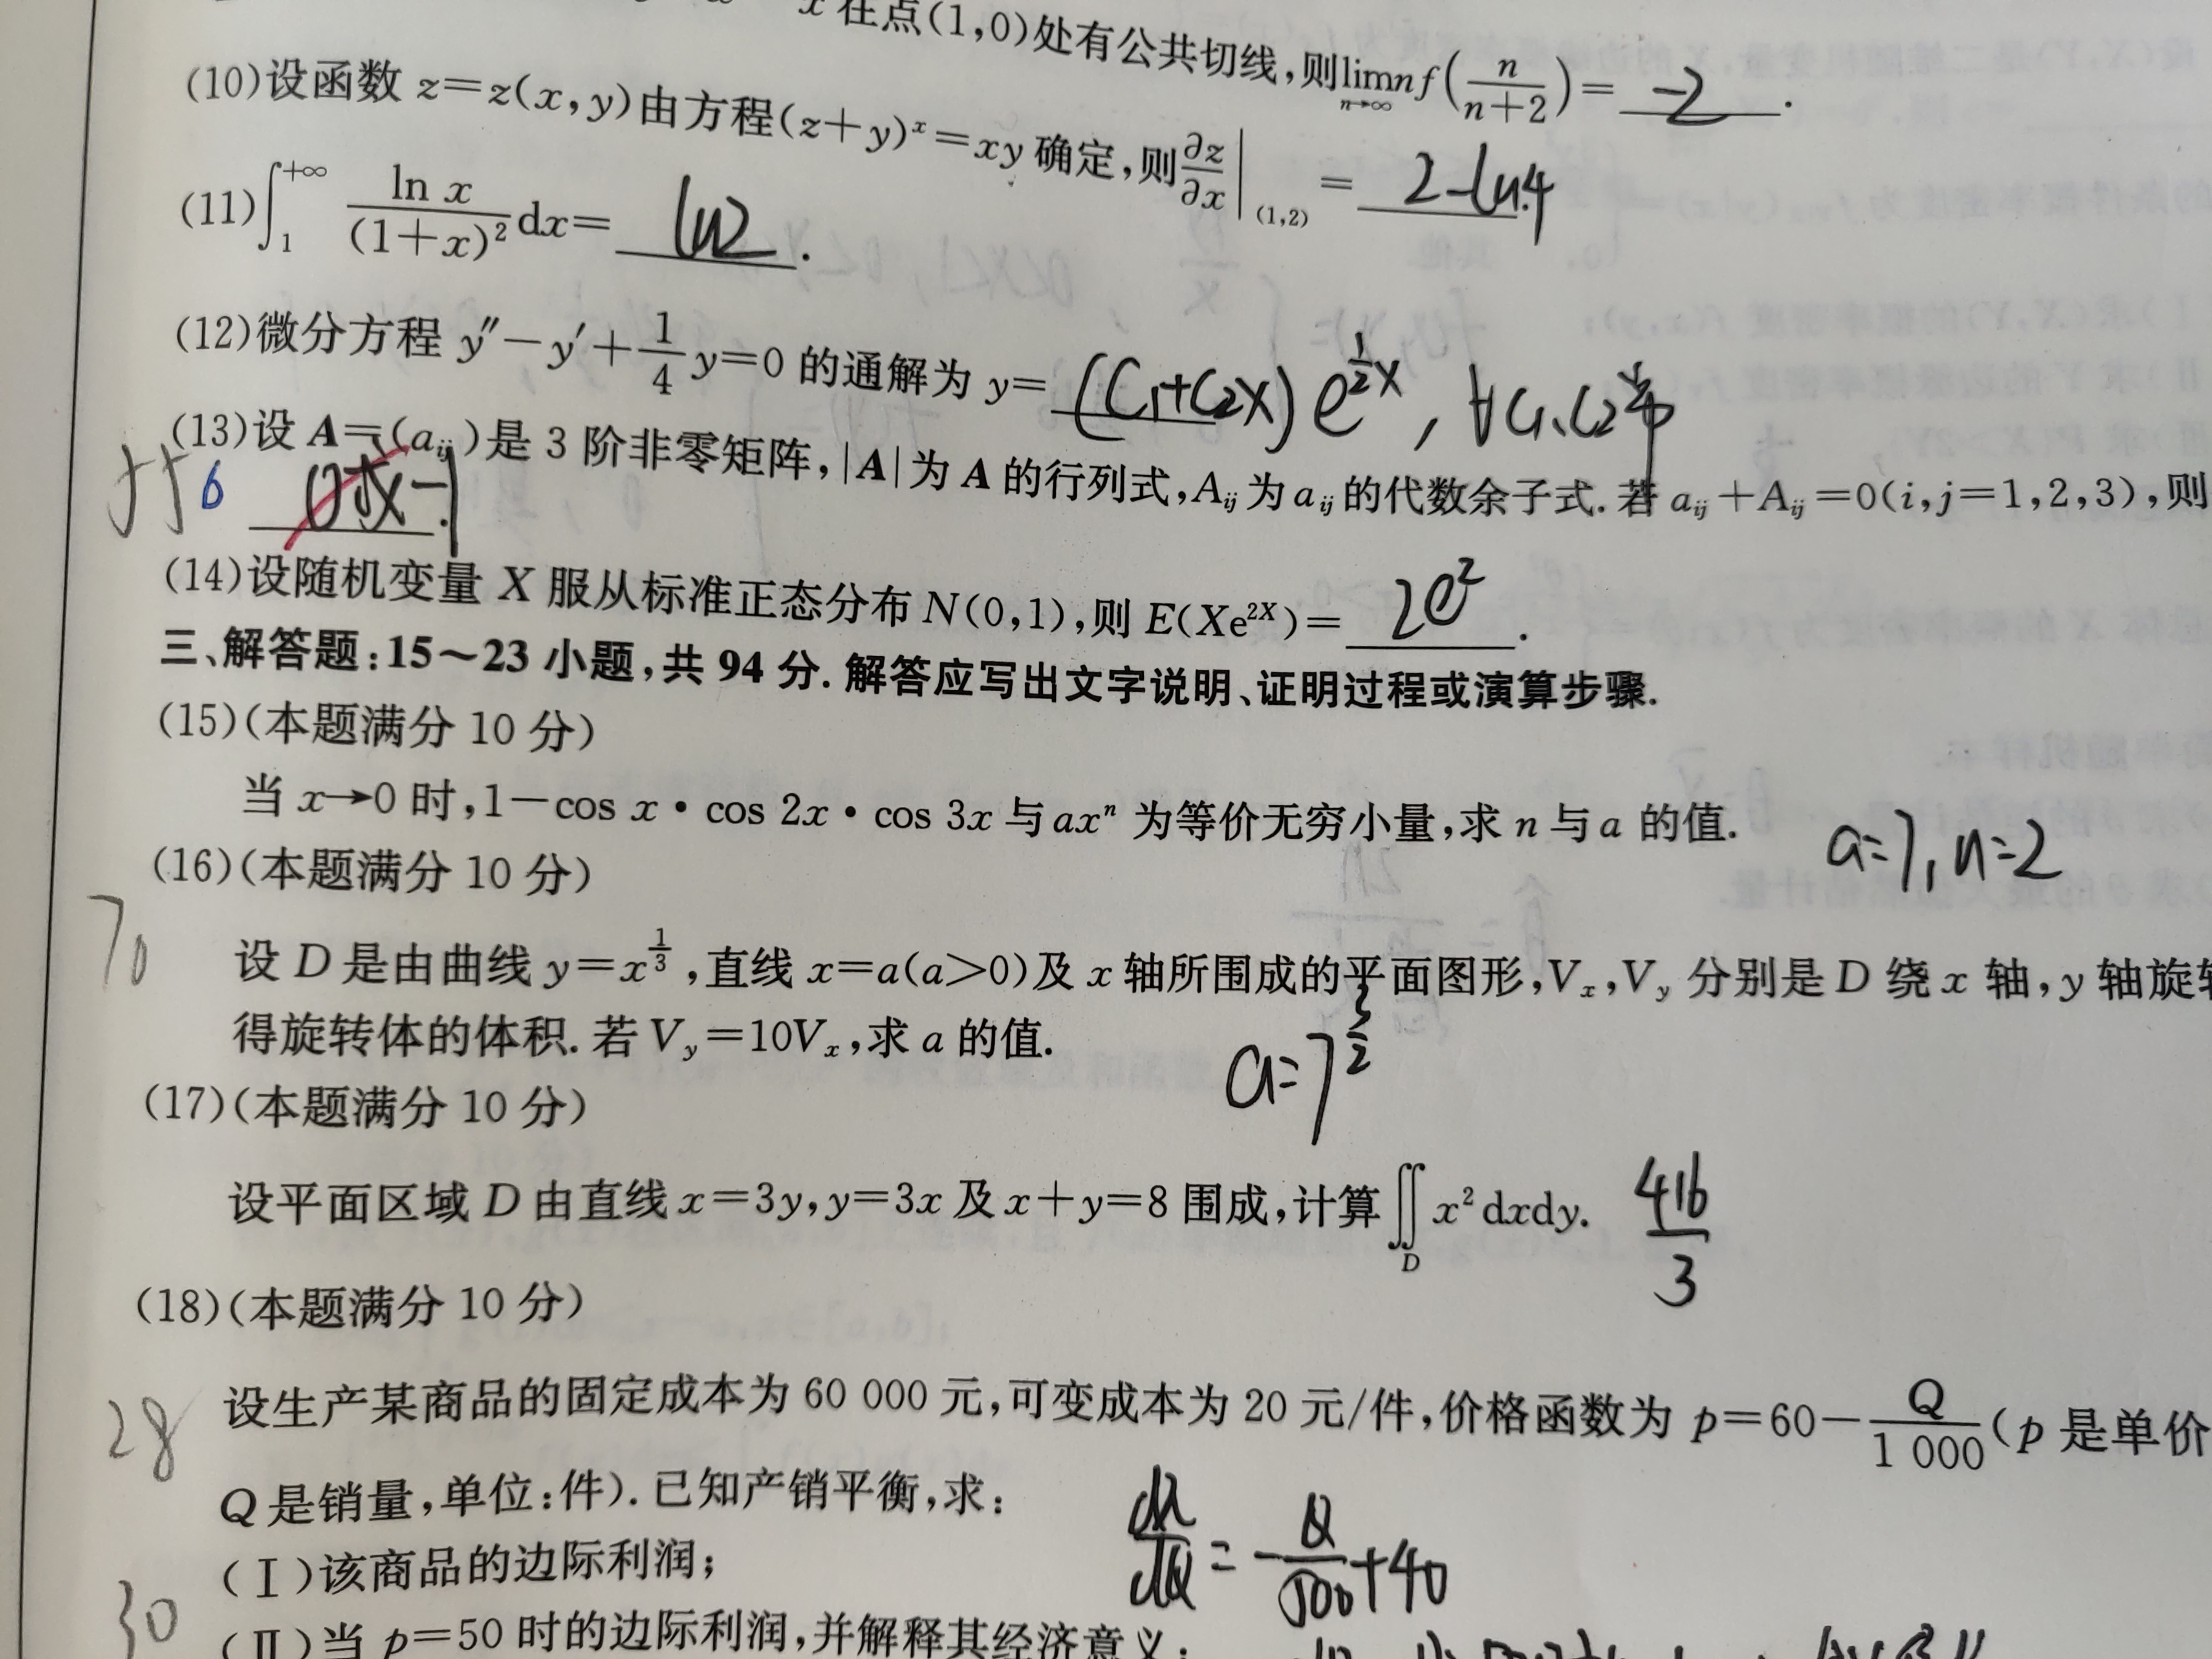 x在点(1,0)处有公共切线,则lim_{n→∞} nf(n/(n+2))= -2 .
(10)设函数 z=z(x,y)由方程(z+y)^x=xy确定,则∂z/∂x|_(1,2) = 2-ln4 .
(11)∫_1^{+∞} ln x/(1+x)² dx= ln2 .
(12)微分方程 y″-y′+1/4 y=0 的通解为 y= (C₁+C₂x)e^{1/2 x}, ∀C₁、C₂
(13)设 A=(a_ij)是 3 阶非零矩阵,|A|为 A 的行列式,A_ij为 a_ij的代数余子式.若 a_ij+A_ij=0(i,j=1,2,3),则
6 0或-1 .
(14)设随机变量 X 服从标准正态分布 N(0,1),则 E(Xe^{2X})= 2e² .
三、解答题:15～23 小题,共 94 分.解答应写出文字说明、证明过程或演算步骤.
(15)(本题满分 10 分)
当 x→0 时,1-cos x·cos 2x·cos 3x 与 ax^n 为等价无穷小量,求 n 与 a 的值.
a=7, n=2
(16)(本题满分 10 分)
70
设 D 是由曲线 y=x^{1/3},直线 x=a(a>0)及 x 轴所围成的平面图形,V_x,V_y 分别是 D 绕 x 轴,y 轴旋转
得旋转体的体积.若 V_y=10V_x,求 a 的值.
a=7^{3/2}
(17)(本题满分 10 分)
设平面区域 D 由直线 x=3y,y=3x 及 x+y=8 围成,计算∬_D x² dxdy. 416/3
(18)(本题满分 10 分)
28 设生产某商品的固定成本为 60 000 元,可变成本为 20 元/件,价格函数为 p=60-Q/1 000(p 是单价
Q 是销量,单位:件).已知产销平衡,求:
(Ⅰ)该商品的边际利润;
= -Q/500+40
30 (Ⅱ)当 p=50 时的边际利润,并解释其经济意义;